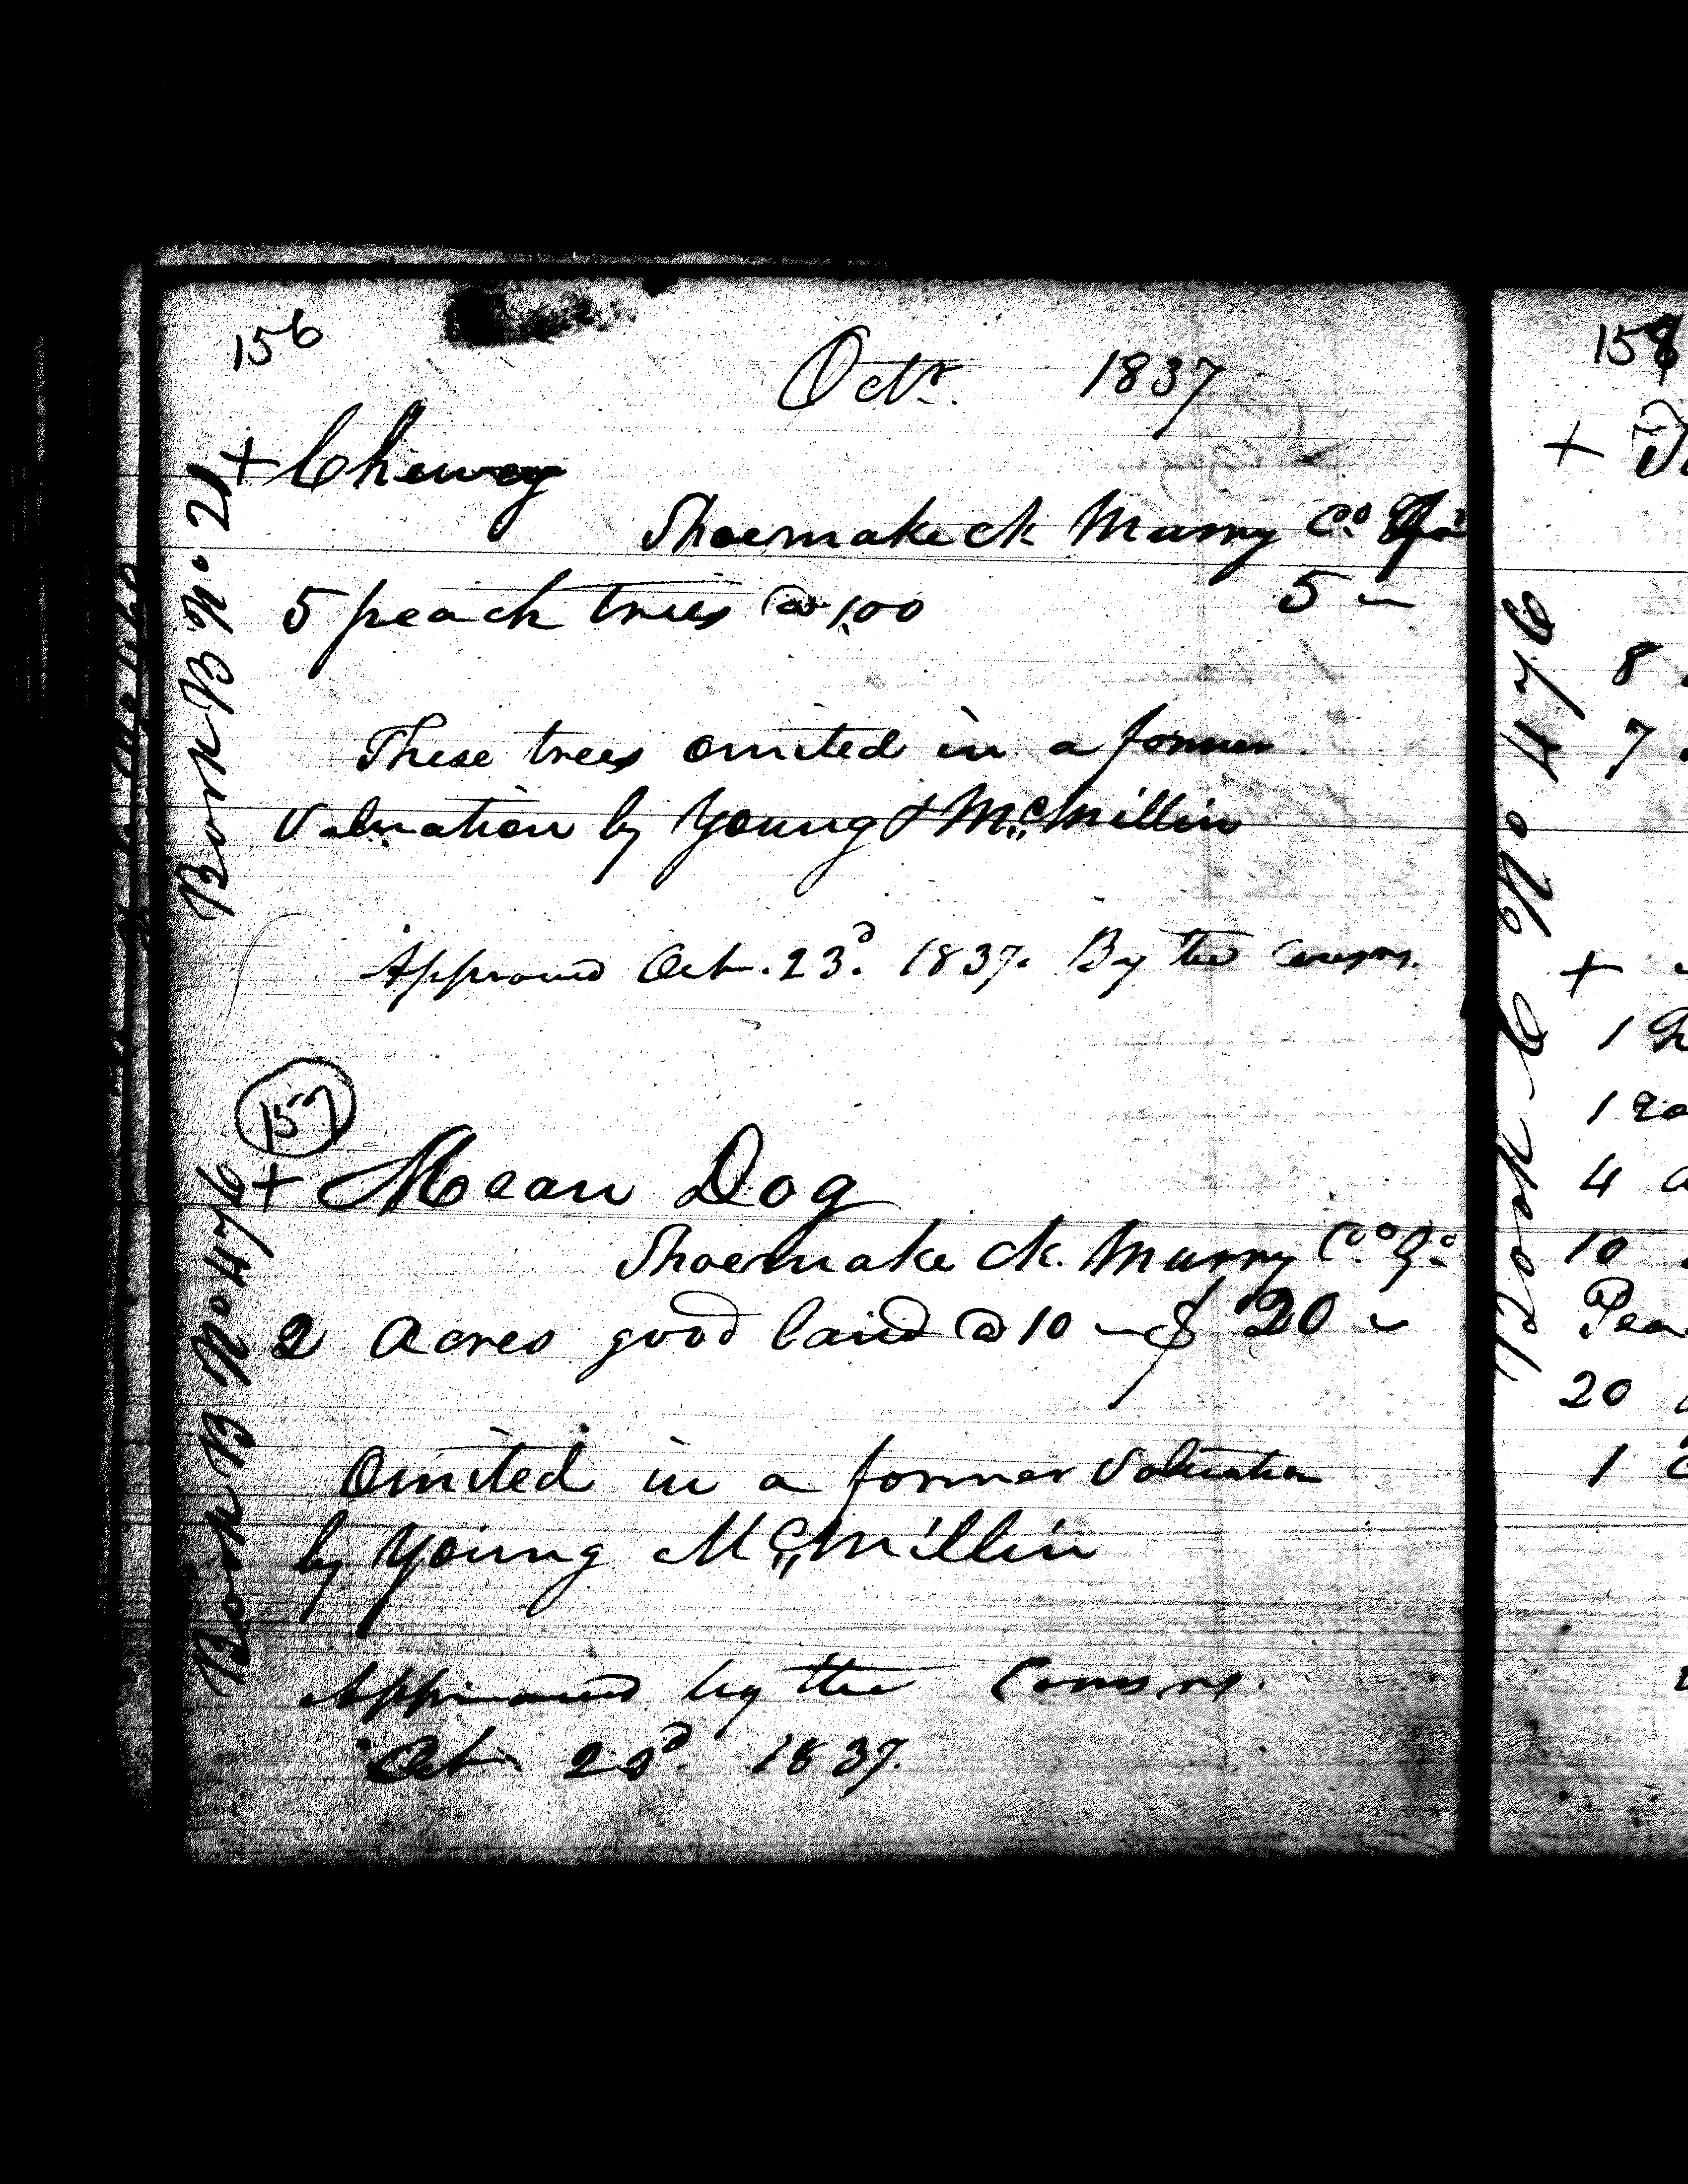 156
Octr. 1837
+ Chewey
Shoemake ck Murry Co. Ga
5 peach trees @ 1.00 5 "
These trees omited in a former
valuation by Young & McMillin
Approved Oct. 23d. 1837. By the Comsrs.
Book B No. 21
157
+ Mean Dog
Shoemake ck. Murry Co. Ga
2 Acres good land @ 10 — $ 20 "
Omited in a former valuation
by Young McMillin
Approved by the Comsrs.
Oct 23d. 1837.
Book B No 476
158
+
8
7
Book No 476
+
1
1
4
10
Pea
20
1